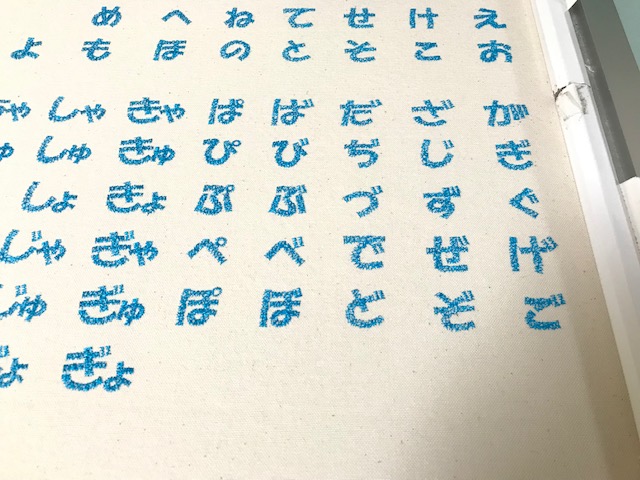 えお
けこ
せそ
てと
ねの
へほ
めも
よ
がぎぐげご
ざじずぜぞ
だぢづでど
ばびぶべぼ
ぱぴぷぺぽ
きゃきゅきょぎゃぎゅぎょ
しゃしゅしょじゃじゅ